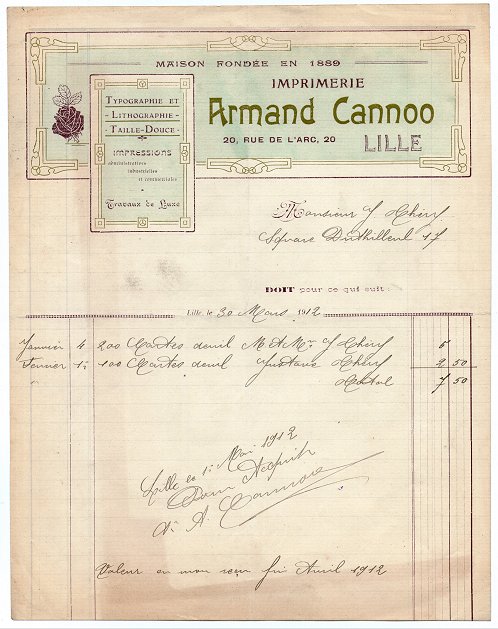 MAISON FONDÉE EN 1889
IMPRIMERIE
Armand Cannoo
20, RUE DE L'ARC, 20
LILLE
TYPOGRAPHIE ET
- LITHOGRAPHIE -
- TAILLE-DOUCE -
IMPRESSIONS
administratives
industrielles
et commerciales
Travaux de Luxe
Monsieur J Chéry
Square Duthilleul 17
DOIT pour ce qui suit :
Lille, le 30 Mars 1912
Janvier 4 200 Cartes deuil M et Mme J Chéry 5
Fevrier 100 Cartes deuil Gustave Chéry 2 50
Total 7 50
Lille le 1r Mai 1912
Pour Acquit
A. Cannoo
Valeur en mon reçu fin Avril 1912